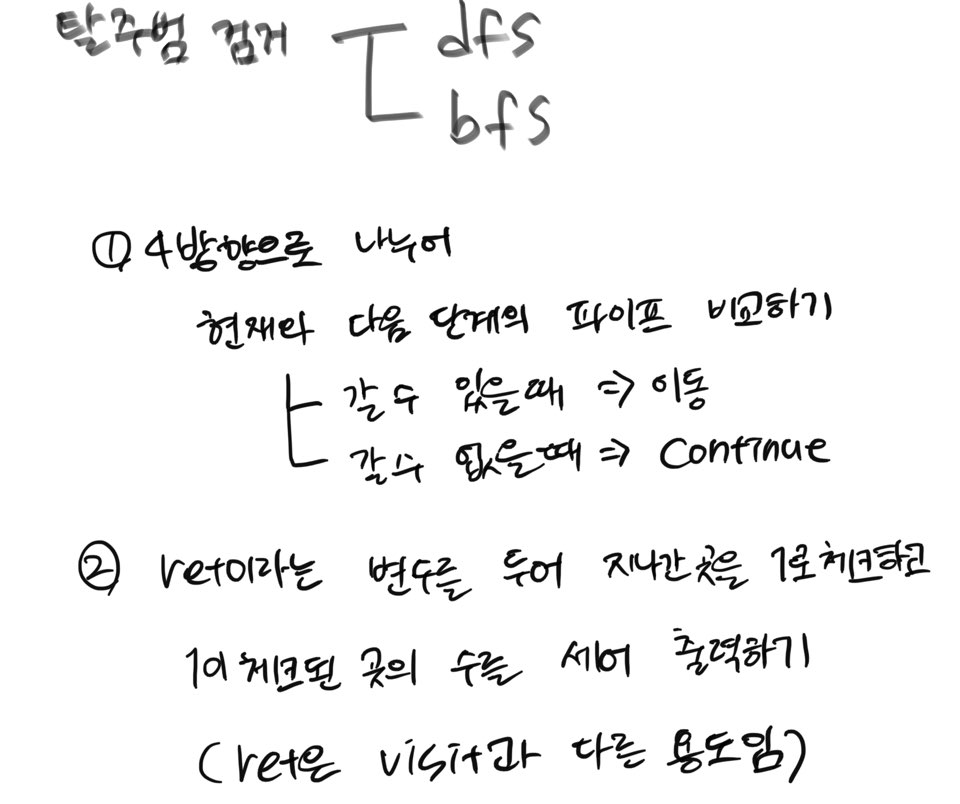 탈주범 검거
dfs
bfs
① 4방향으로 나누어
현재와 다음 단계의 파이프 비교하기
갈 수 있을때 => 이동
갈 수 없을때 => Continue
② ret이라는 변수를 두어 지나간 곳을 1로 체크하고
1이 체크된 곳의 수를 세어 출력하기
(ret은 visit과 다른 용도임)